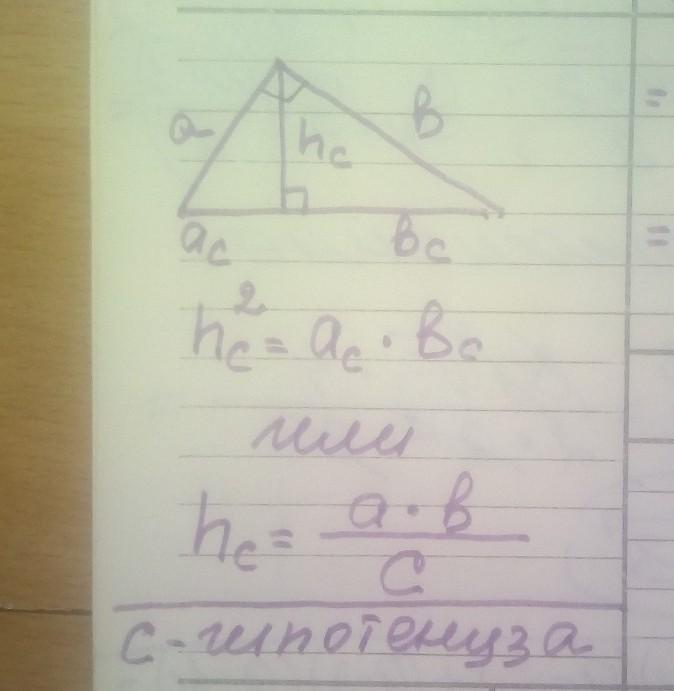 a
в
hc
ac
вc
hc² = ac · вc
или
hc = a · в / c
c - гипотенуза
=
=